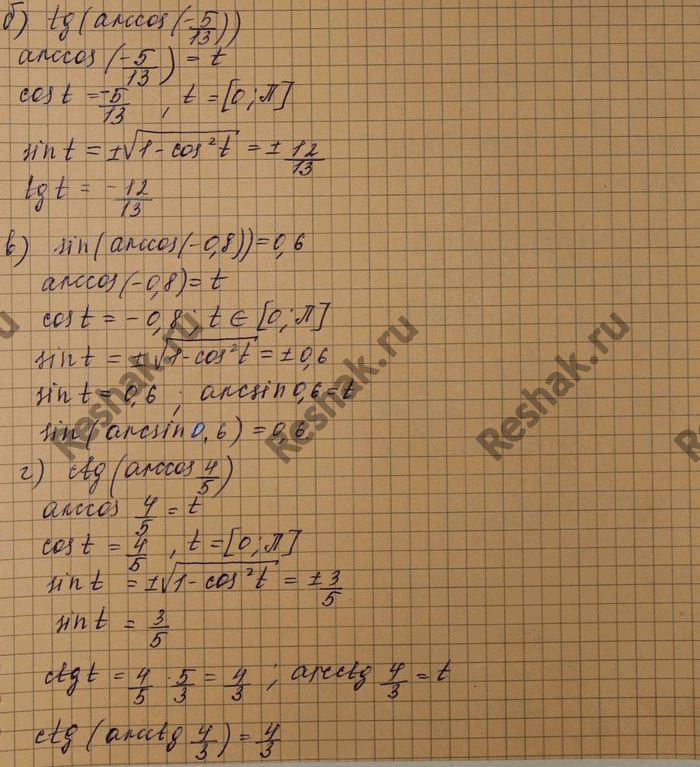 б) tg(arccos(-5/13))
arccos(-5/13) = t
cos t = -5/13 , t = [0; π]
sin t = ±√(1-cos²t) = ± 12/13
tg t = - 12/13
в) sin(arccos(-0,8)) = 0,6
arccos(-0,8) = t
cos t = -0,8; t ∈ [0; π]
sin t = ±√(1-cos²t) = ±0,6
sin t = 0,6 ; arcsin 0,6 = t
sin(arcsin 0,6) = 0,6
г) ctg(arccos 4/5)
arccos 4/5 = t
cos t = 4/5 , t = [0; π]
sin t = ±√(1-cos²t) = ± 3/5
sin t = 3/5
ctg t = 4/5 · 5/3 = 4/3 ; arcctg 4/3 = t
ctg(arcctg 4/3) = 4/3
Reshak.ru
Reshak.ru
Reshak.ru